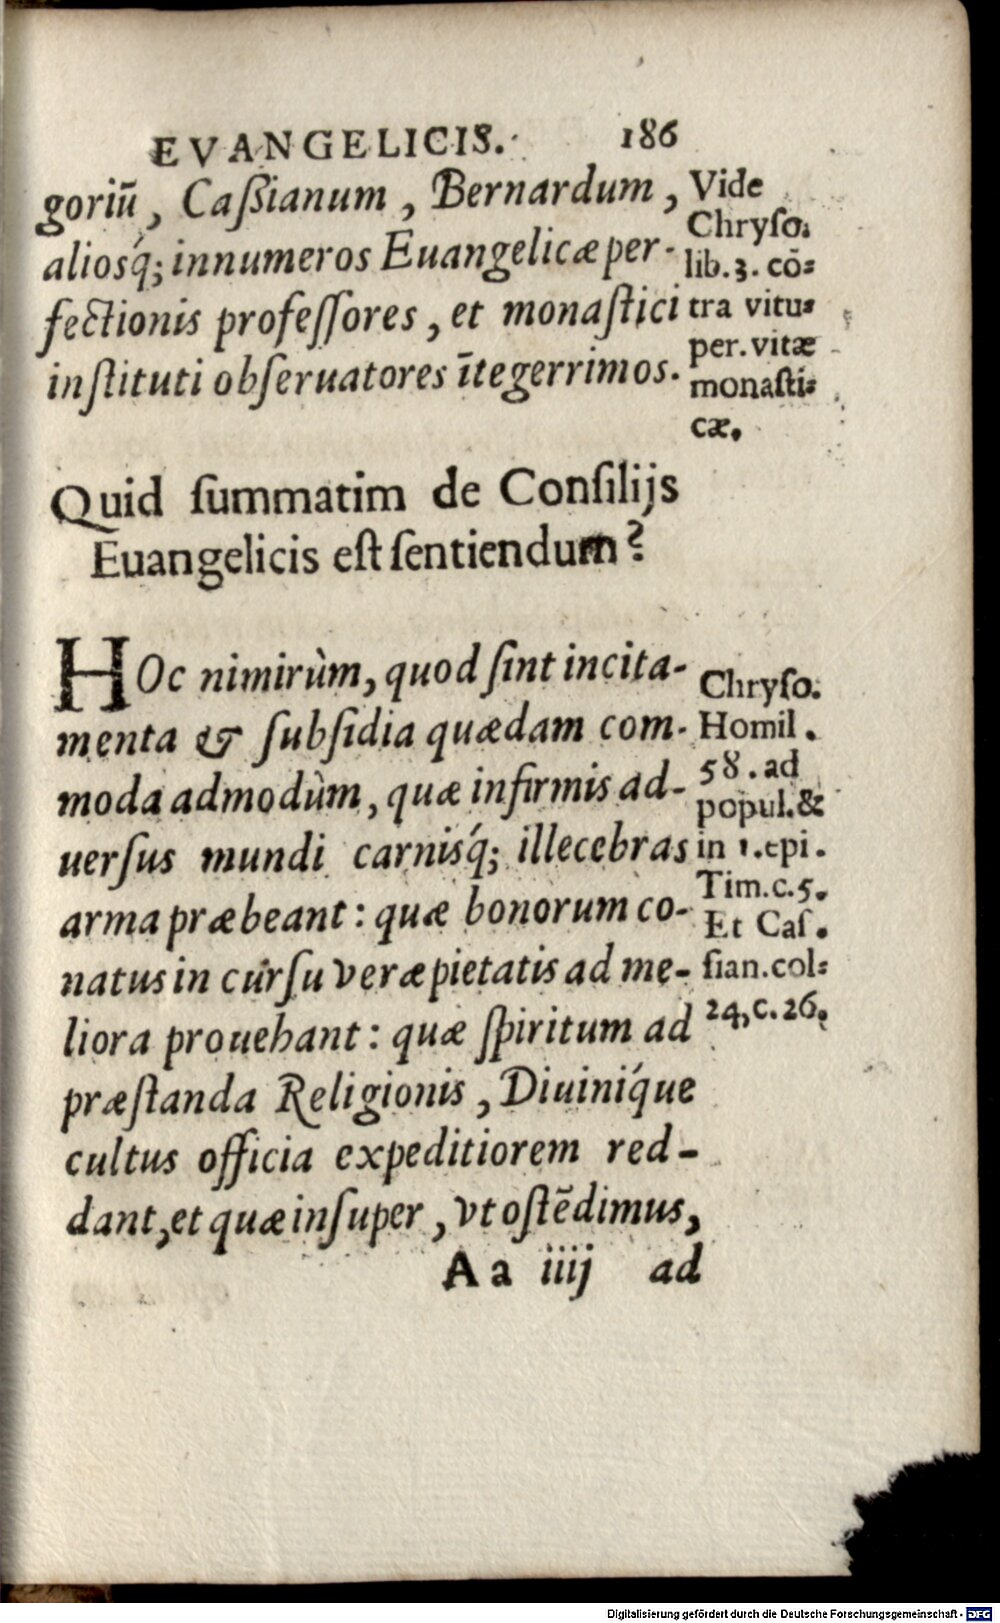 EVANGELICIS. 186
goriū, Caſsianum, Bernardum,
aliosq́; innumeros Euangelicæ per-
fectionis profeſſores, et monaſtici
inſtituti obſeruatores ītegerrimos.
Vide
Chryſo.
lib.3. cō=
tra vitu=
per. vitæ
monaſti=
cæ.
Quid ſummatim de Conſilijs
Euangelicis eſt ſentiendum?
HOc nimirùm, quod ſint incita-
menta & ſubſidia quædam com-
moda admodùm, quæ infirmis ad-
uerſus mundi carnisq́; illecebras
arma præbeant: quæ bonorum co-
natus in curſu veræ pietatis ad me-
liora prouehant: quæ ſpiritum ad
præſtanda Religionis, Diuiniq́ue
cultus officia expeditiorem red-
dant, et quæ inſuper, vt oſtēdimus,
Chryſo.
Homil.
58. ad
popul.&
in 1.epi.
Tim.c.5.
Et Caſ.
ſian.col=
24,c.26.
Aa iiij ad
Digitalisierung gefördert durch die Deutsche Forschungsgemeinschaft - DFG